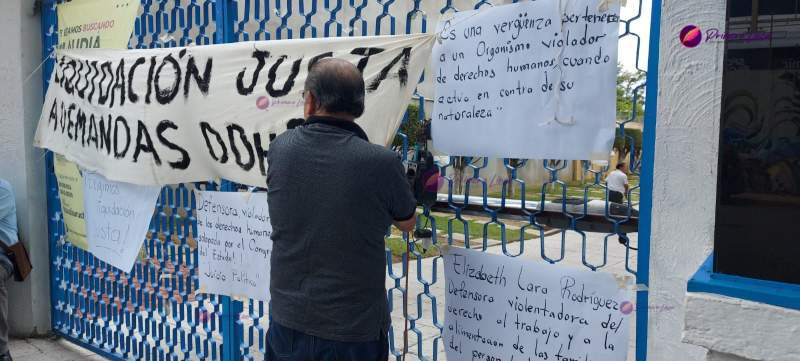 TE ESTAMOS
BUSCANDO
CLAUDIA
LIQUIDACIÓN JUSTA
A DEMANDAS DDH
Exigimos
liquidación
justa!
Defensora, violadora
de los derechos humanos
solapada por el Congreso
del Estado!
Juicio Político"
"Es una vergüenza pertenecer
a un Organismo violador
de derechos humanos cuando
actúa en contra de su
naturaleza"
Elizabeth Lara Rodríguez
Defensora violentadora del
derecho al trabajo y a la
alimentación de las
del